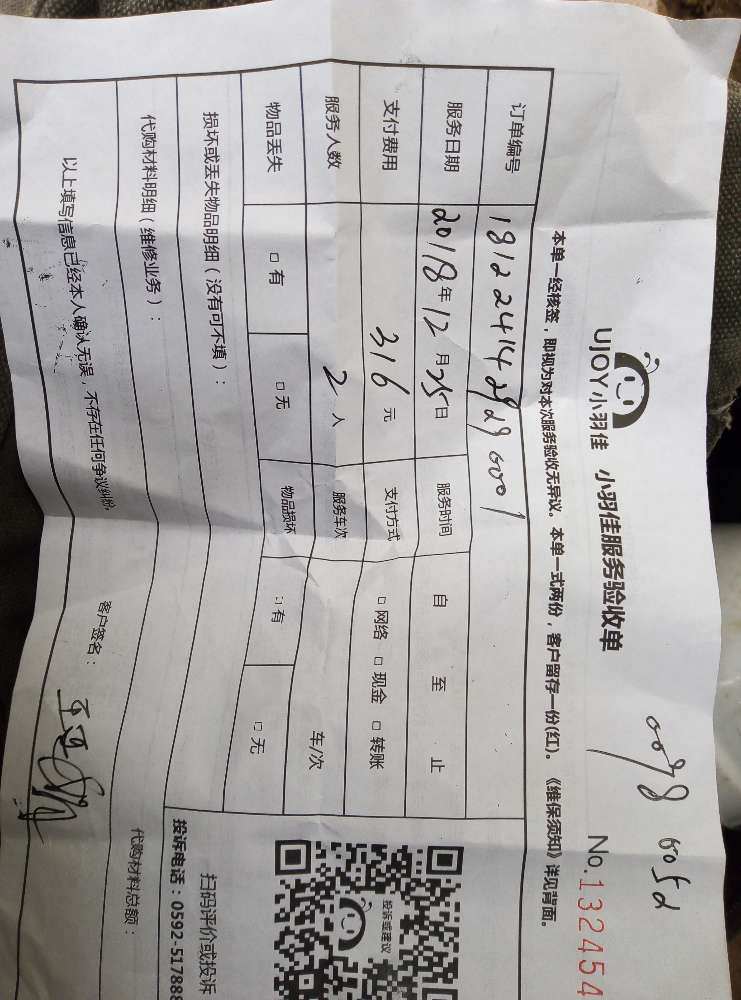 UJOY小羽佳 小羽佳服务验收单
No.132454
本单一经核签，即视为对本次服务验收无异议。本单一式两份，客户留存一份(红)。《维保须知》详见背面。
订单编号
服务日期 2018年12月25日 服务时间 自 至 止
支付费用 316元 支付方式 □网络 □现金 □转账
服务人数 2人 服务车次 车/次
物品丢失 □有 □无 物品损坏 □有 □无
损坏或丢失物品明细（没有可不填）：
代购材料明细（维修业务）： 代购材料总额：
以上填写信息已经本人确认无误，不存在任何争议纠纷。 客户签名：
投诉或建议
扫码评价或投诉
投诉电话：0592-51788